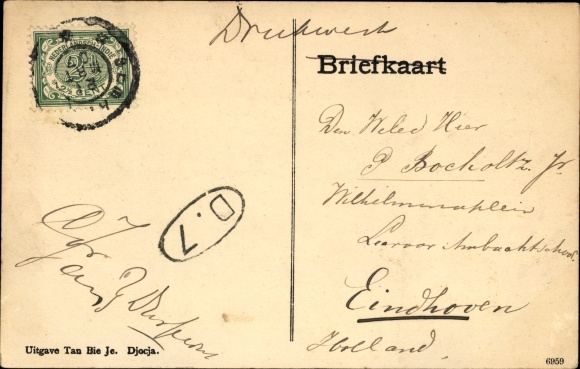 Drukwerk
Briefkaart
Den Weled Heer
P Bocholtz Jr.
Wilhelminaplein
Leeraar Ambachtschool
Eindhoven
Holland.
D.7
Uitgave Tan Bie Je. Djocja.
6959